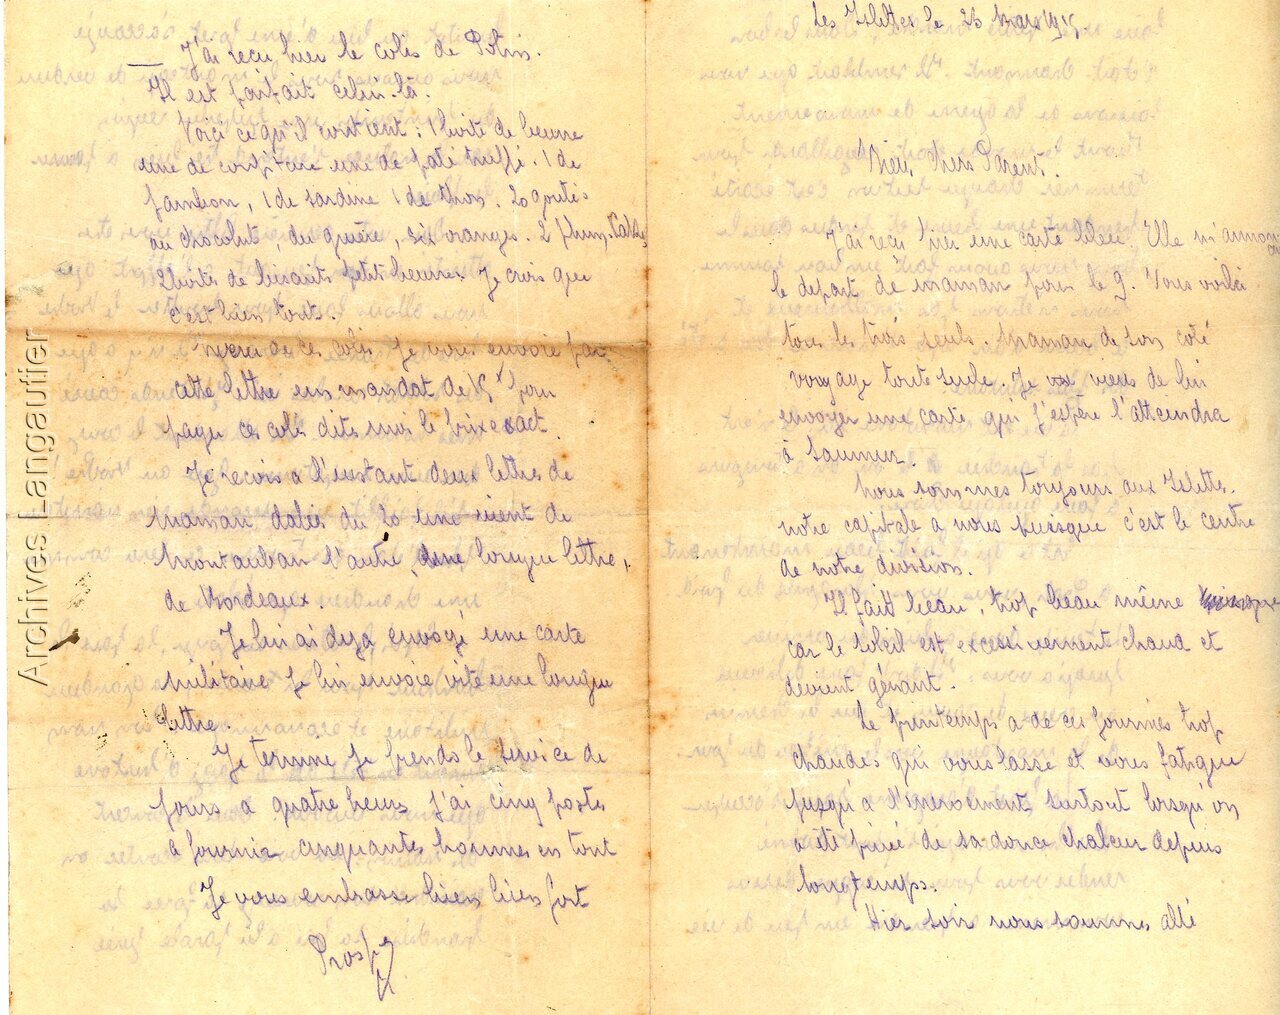 J'ai recu hier le colis de Potin.
Il est parfait celui-la.
Voici ce qu'il contient : 1 boite de beurre
une de confiture une de paté truffé. 1 de
jambon, 1 de sardine 1 de thon. 20 goutés
au chocolat, du gruère, six oranges. 2 plum,
2 boites de biscuits petit beurre Je crois que
c'est bien tout.
de ces colis. Je vous envoie par
cette lettre un mandat de pour
payer ces colis dites moi le prix exact.
Je recois a l'instant deux lettres de
maman datées du 20 une vient de
Montauban l'autre, une longue lettre,
de Bordeaux.
Je lui ai deja envoyé une carte
militaire Je lui envoie vite une longue
lettre.
Je termine Je prends le service de
jours a quatre heures j'ai cinq postes
a fournir cinquante hommes en tout
Je vous embrasse bien bien fort
Prosp
Les Islettes le 26 Mars 1915
Mes chers Parent.
J'ai recu hier une carte bleu. Elle m'annonce
le depart de maman pour le 9. Vous voila
tous les trois seuls. Maman de son coté
voyage toute seule. Je viens de lui
envoyer une carte qui j'espère l'atteindra
à Saumur.
Nous sommes toujours aux Islettes.
notre capitale a nous puisque c'est le centre
de notre division.
Il fait beau, trop beau même
car le soleil est excessivement chaud et
devient gênant.
Le printemps a de ces journées trop
chaudes qui vous lasse et vous fatigue
jusqu'a l'enervement surtout lorsqu'on
a été privé de sa douce chaleur depuis
longtemps.
Hier soir nous sommes allé
Archives Langautier